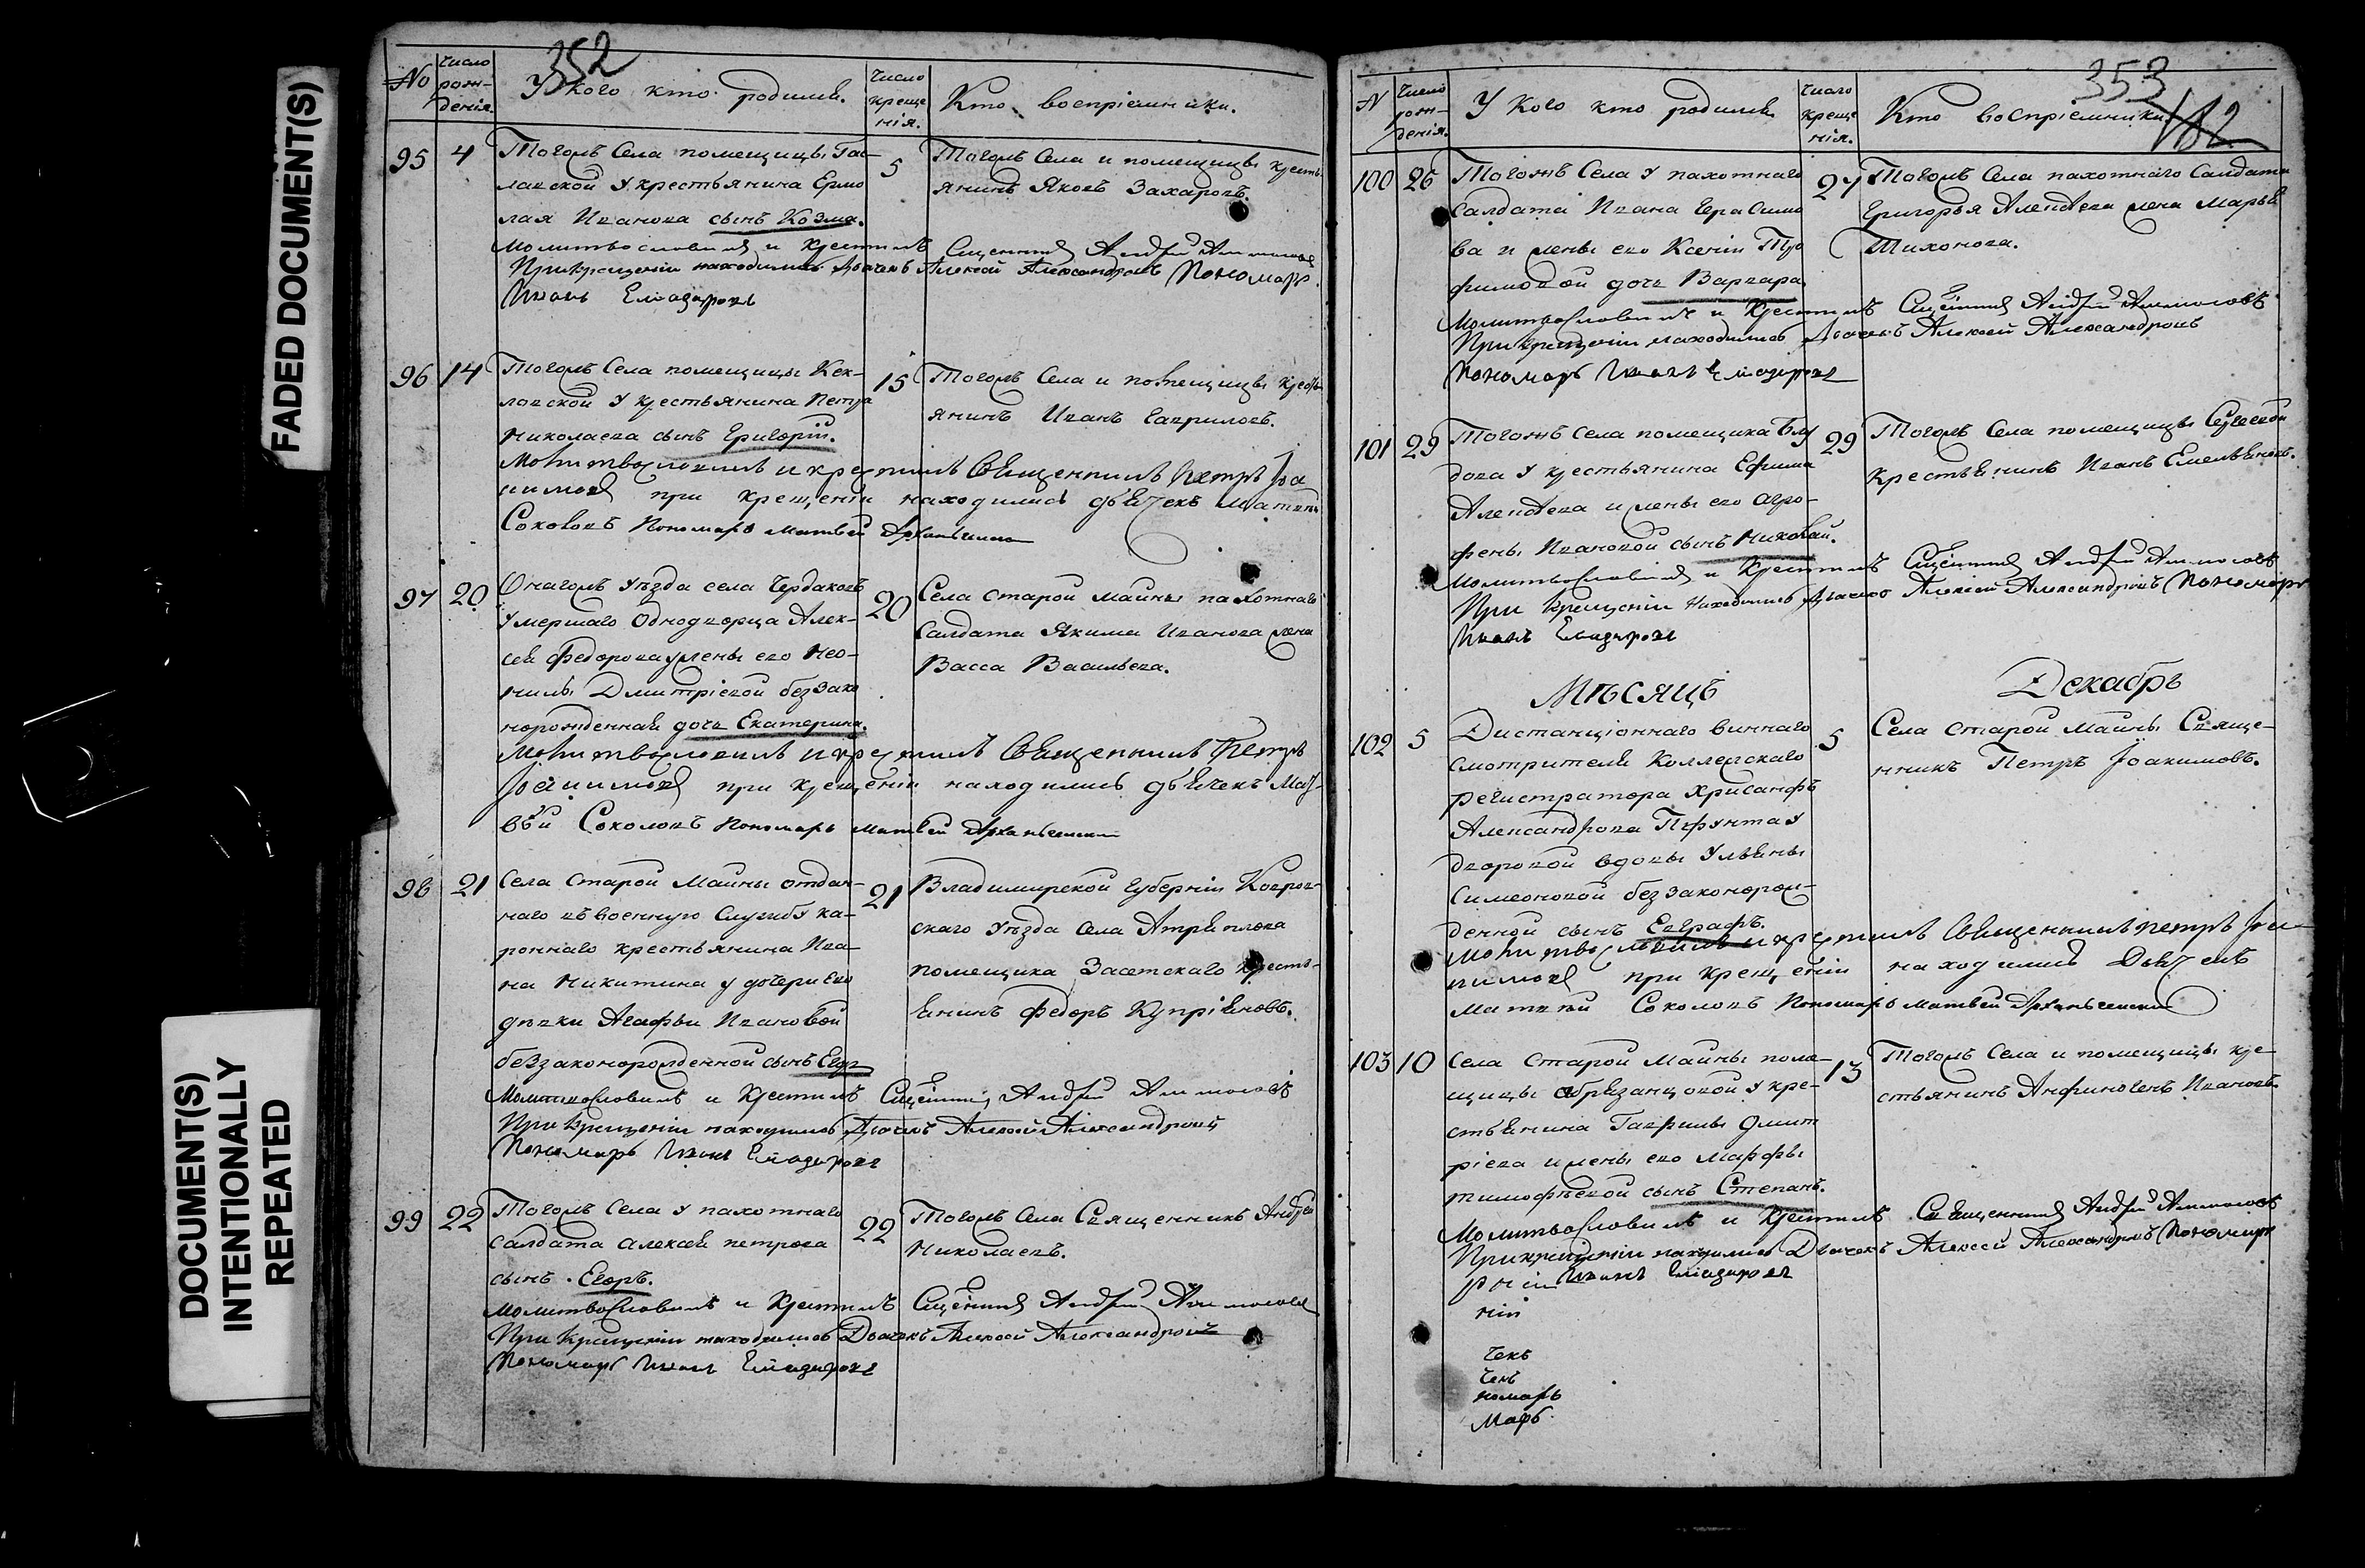 FADED DOCUMENT(S)
DOCUMENT(S)
INTENTIONALLY
REPEATED
352
No
Число рож-
денія.
У кого кто родился.
Число
креще
нія.
Кто воспріемники.
95 4
Тогожъ Села помещицы
У крестьянина Ермо
лая Иванова сынъ Козма.
Молитвословилъ и крестилъ Священникъ Андрей
При крещеніи находились Дьячекъ Алексей Александровъ Пономарь
Иванъ
5
Тогожъ Села и помещицы кресть
янинъ Яковъ Захаровъ.
96 14
Тогожъ Села помещицы
У крестьянина Петра
Николаева сынъ Григорій.
Молитвословилъ и крестилъ Священникъ Петръ Іоа
кимовъ при крещеніи находились дьячекъ Матвей
Соколовъ Пономарь Матвей Архангельскій
15
Тогожъ Села и помещицы кресть
янинъ Иванъ Гавриловъ.
97 20
Онагожъ Уѣзда села Чердаковъ
Умершаго Однодворца Алек-
сея Федорова у жены его Нео-
нилы Дмитріевой беззако
норожденная дочь Екатерина.
Молитвословилъ и крестилъ Священникъ Петръ
Іоакимовъ при крещеніи находились дьячекъ Мат-
вѣй Соколовъ Пономарь Матвей Архангельскій
20
Села Старой Майны пахотнаго
Салдата Якима Иванова жена
Васса Васильева.
98 21
Села Старой Майны отдан-
наго въ военную Службу ка-
роннаго крестьянина Ива-
на Никитина у дочери его
дѣвки Агафьи Ивановой
беззаконорожденной сынъ Егоръ
Молитвословилъ и Крестилъ Священникъ Андрей
При крещеніи находились Дьячекъ Алексей Александровъ
Пономарь Иванъ
21
Владимирской Губерніи Ковров-
скаго Уѣзда Села
помещика Засетскаго кресть-
янинъ Федоръ Купріяновъ.
99 22
Тогожъ Села У пахотнаго
Салдата Алексея Петрова
сынъ Егоръ.
Молитвословилъ и Крестилъ Священникъ Андрей
При Крещеніи находились Дьячекъ Алексей Александровъ
Пономарь Иванъ
22
Тогожъ Села Священникъ Андрей
Николаевъ.
353
182
N
Число
рож-
денія.
У кого кто родился
Число
креще
нія.
Кто воспріемники.
100 26
Тогожъ Села У пахотнаго
Салдата Ивана Герасимо
ва и жены его Ксеніи Тро
фимовой дочь Варвара
Молитвословилъ и Крестилъ Священникъ Андрей
При крещеніи находились Дьячекъ Алексей Александровъ
Пономарь Иванъ
27
Тогожъ Села пахотнаго Салдата
Григорья Алексеева жена Марья
Тихонова.
101 29
Тогожъ Села помещика Блу
дова У крестьянина Ефима
Алексеева и жены его Агро-
фены Ивановой сынъ Николай.
Молитвословилъ и Крестилъ Священникъ Андрей
При Крещеніи Находились Дьячекъ Алексей Александровъ Пономарь
Иванъ
29
Тогожъ Села помещицы
крестьянинъ Иванъ Емельяновъ.
Мѣсяцъ Декабрь
102 5
Дистанціоннаго виннаго
Смотрителя Коллежскаго
регистратора Хрисанфа
Александрова У
дворовой вдовы Ульяны
Симеоновой беззаконорож-
денной сынъ Евграфъ.
Молитвословилъ и крестилъ Священникъ Петръ Іоа-
кимовъ при крещеніи находились Дьячекъ
Матвей Соколовъ Пономарь Матвей Архангельскій
5
Села Старой Майны Свяще-
нникъ Петръ Іоакимовъ.
103 10
Села Старой Майны поме-
щицы Обрезанцовой У кре-
стьянина Гаврилы Дмит
ріева и жены его Марфы
Тимофѣевой сынъ Степанъ.
Молитвословилъ и Крестилъ Священникъ Андрей
При крещеніи находились Дьячекъ Алексей Александровъ Пономарь
Иванъ
13
Тогожъ Села и помещицы кре-
стьянинъ Анфиногенъ Ивановъ
ніи
чекъ
чекъ
номарь
Марь